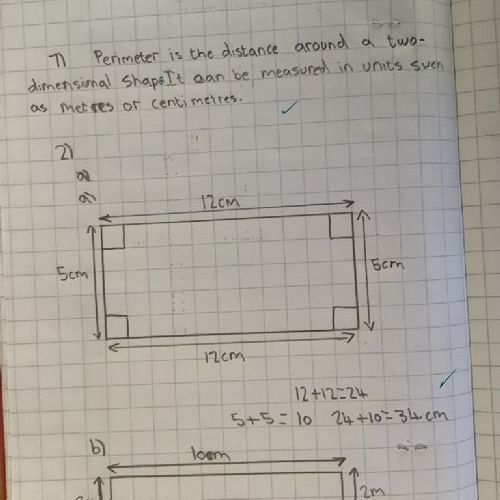 1) Perimeter is the distance around a two-
dimensional shape It can be measured in units such
as metres or centimetres.
2)
a)
12cm
5cm
5cm
12cm
12+12=24
5+5=10 24+10=34cm
b)
10cm
2m